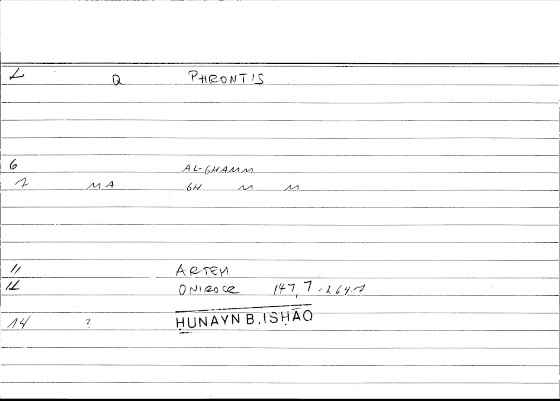 L Q PHRONTIS
6 AL-GHAMM
7 MA GH M M
11 ARTEM
12 ONIROCR 147,7 - 264.7
14 ? ḤUNAYN B. ISḤĀQ